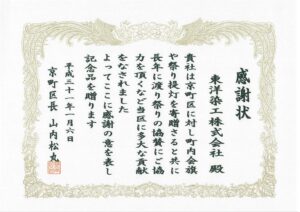 感謝状
東洋染工株式会社 殿
貴社は京町区に対し町内会旗
や祭り提灯を寄贈さると共に
長年に渡り祭りの協賛にご協
力を頂くなど当区に多大な貢献
をなされました
よってここに感謝の意を表し
記念品を贈ります
平成三十一年一月六日
京町区長 山内松丸